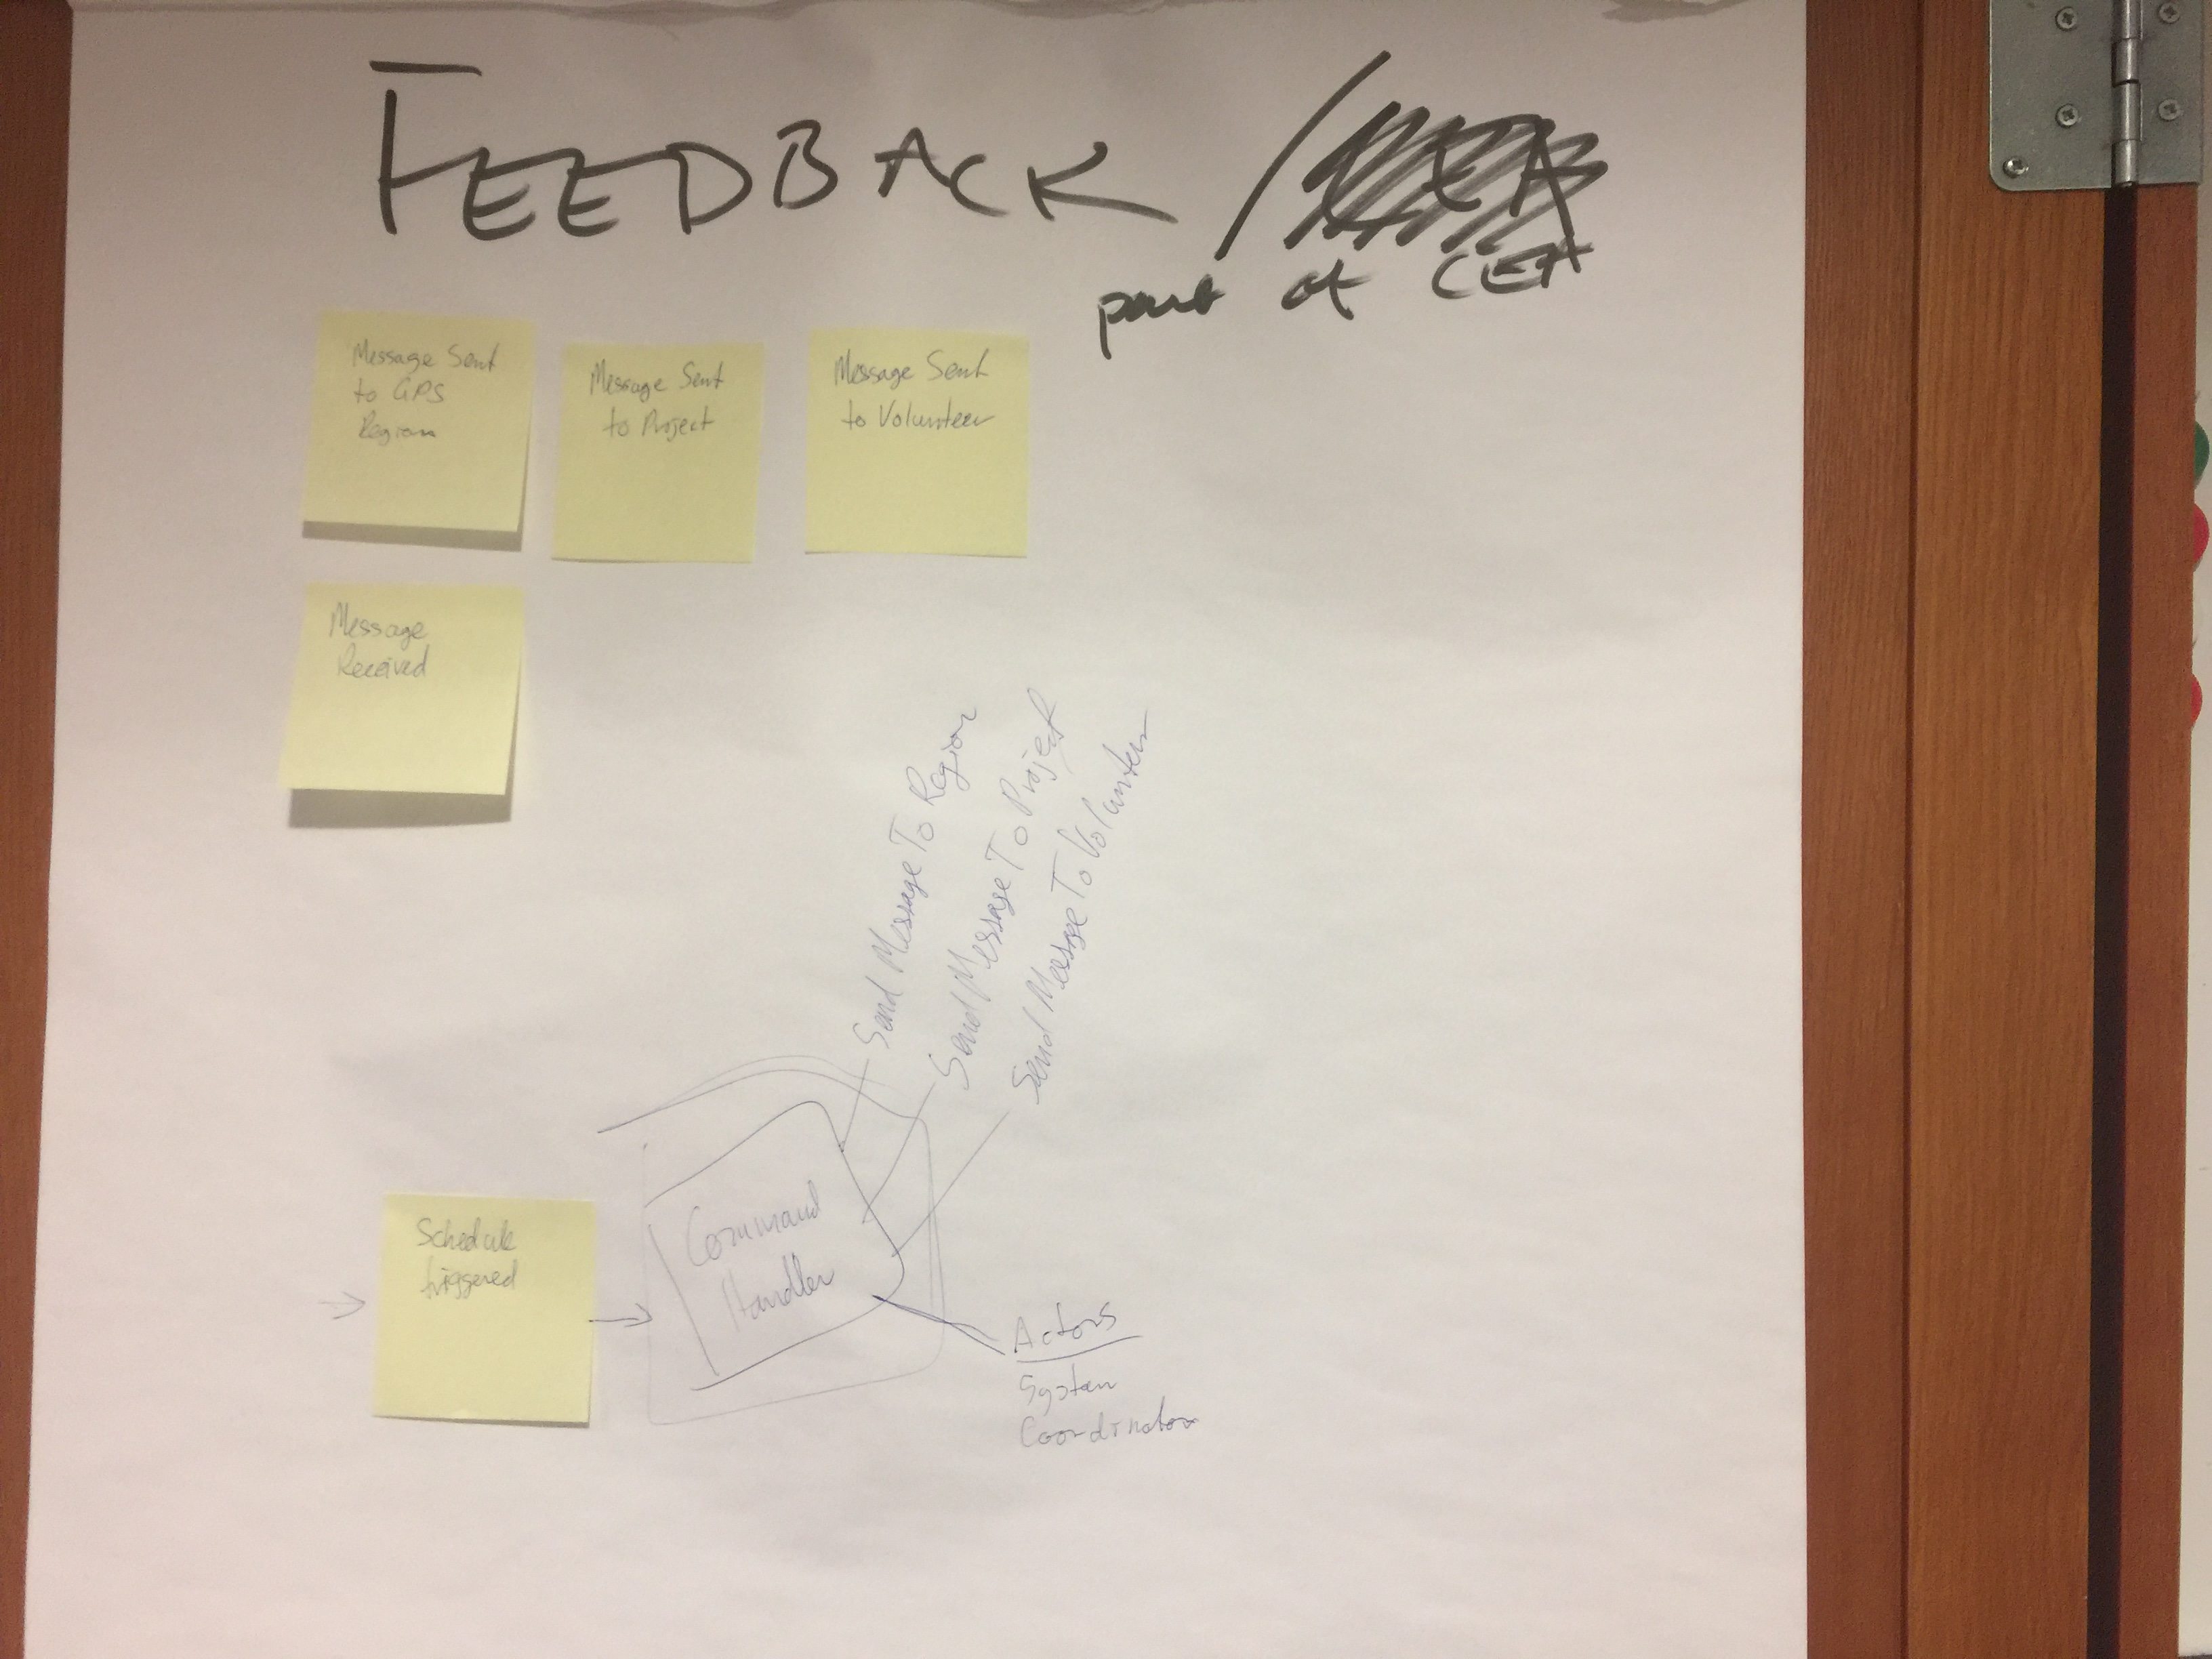 FEEDBACK /
part of CEA
Message Sent
to GPS
Region
Message Sent
to Project
Message Sent
to Volunteer
Message
Received
Send Message To Region
Send Message To Project
Send Message To Volunteer
Schedule
triggered
Command
Handler
Actors
System
Coordinator